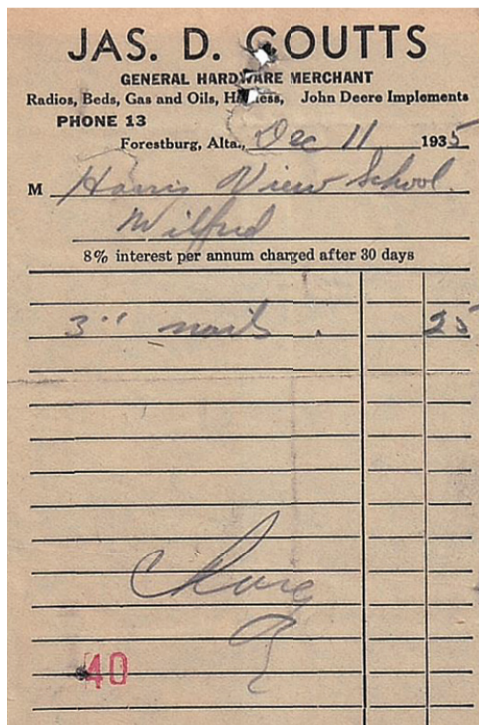 JAS. D. COUTTS
GENERAL HARDWARE MERCHANT
Radios, Beds, Gas and Oils, Harness, John Deere Implements
PHONE 13
Forestburg, Alta., Dec 11 1935
M Harris View School.
Wilfred
8% interest per annum charged after 30 days
3" nails . 25
40